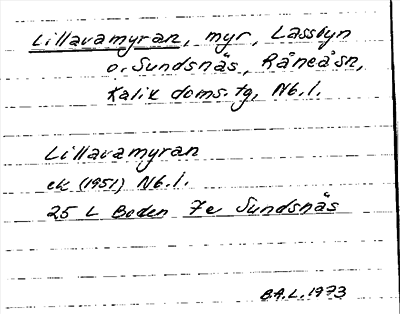 Lillavamyran, myr, Lassbyn
o. Sundsnäs, Råneå sn,
Kalix doms. tg, Nb. l.
Lillavamyran
ek (1951) Nb. l.
25 L Boden 7e Sundsnäs
B.A.L. 1973